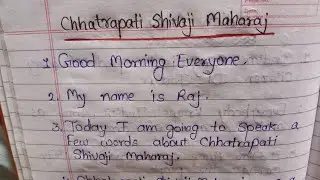 Chhatrapati Shivaji Maharaj
1. Good Morning Everyone.
2. My name is Raj.
3. Today I am going to speak a
few words about Chhatrapati
Shivaji Maharaj.